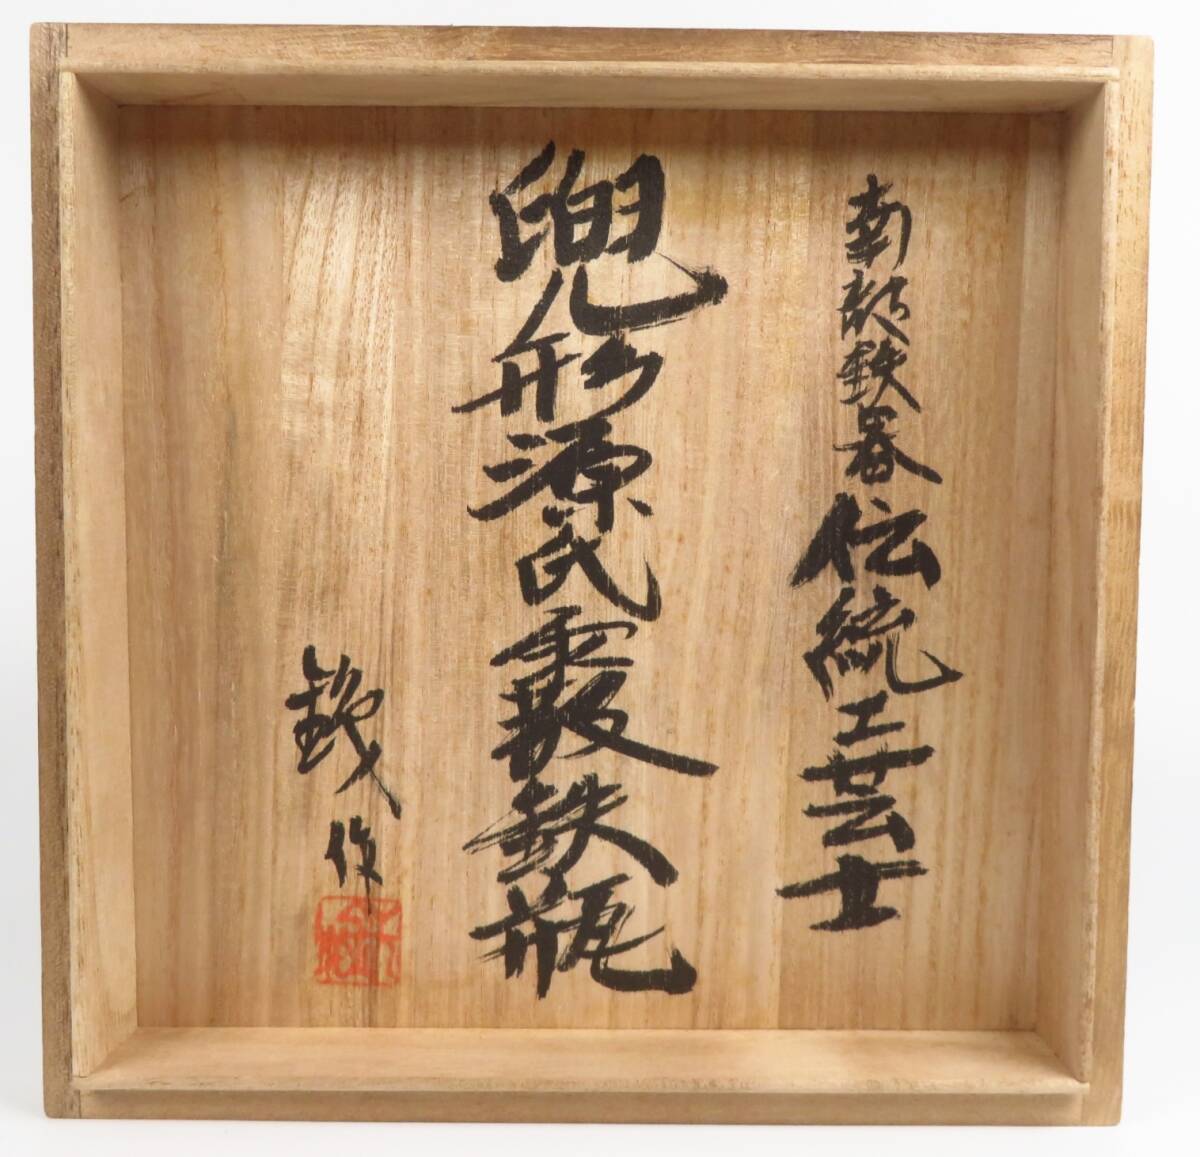 南部鉄器伝統工芸士
兜形源氏霰鉄瓶
作